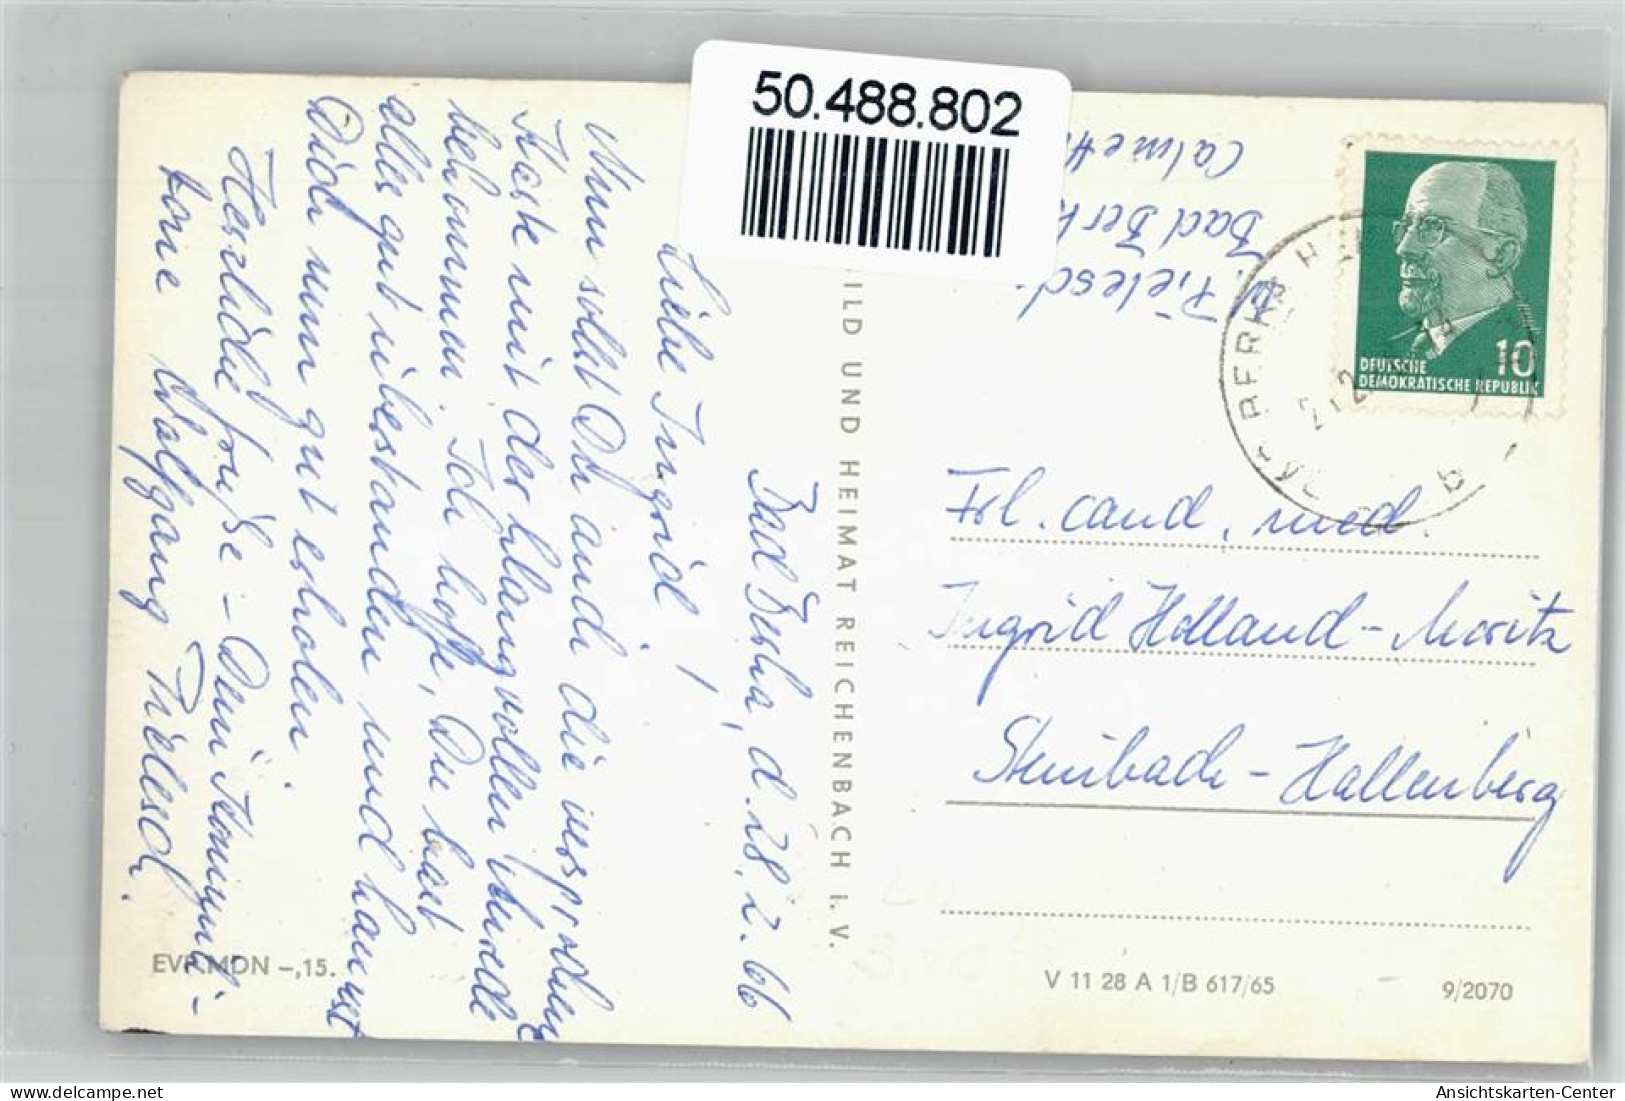 50.488.802
Bad Berka, d. 28.2.66
Liebe Ingrid!
Nun sollst Du auch die versprochene
Karte mit der klangvollen Anrede
bekommen. Ich hoffe, Du hast
alles gut überstanden und kannst
Dich nun gut erholen.
Herzliche Grüße – Dein Kommili-
tone Wolfgang
W.
Bad Berk
Calmett
BILD UND HEIMAT REICHENBACH I. V.
DEUTSCHE
DEMOKRATISCHE REPUBLIK
10
BAD BERKA
Frl. cand. med.
Ingrid Holland-Moritz
Steinbach-Hallenberg
EVP MDN –,15.
V 11 28 A 1/B 617/65
9/2070
Ansichtskarten-Center